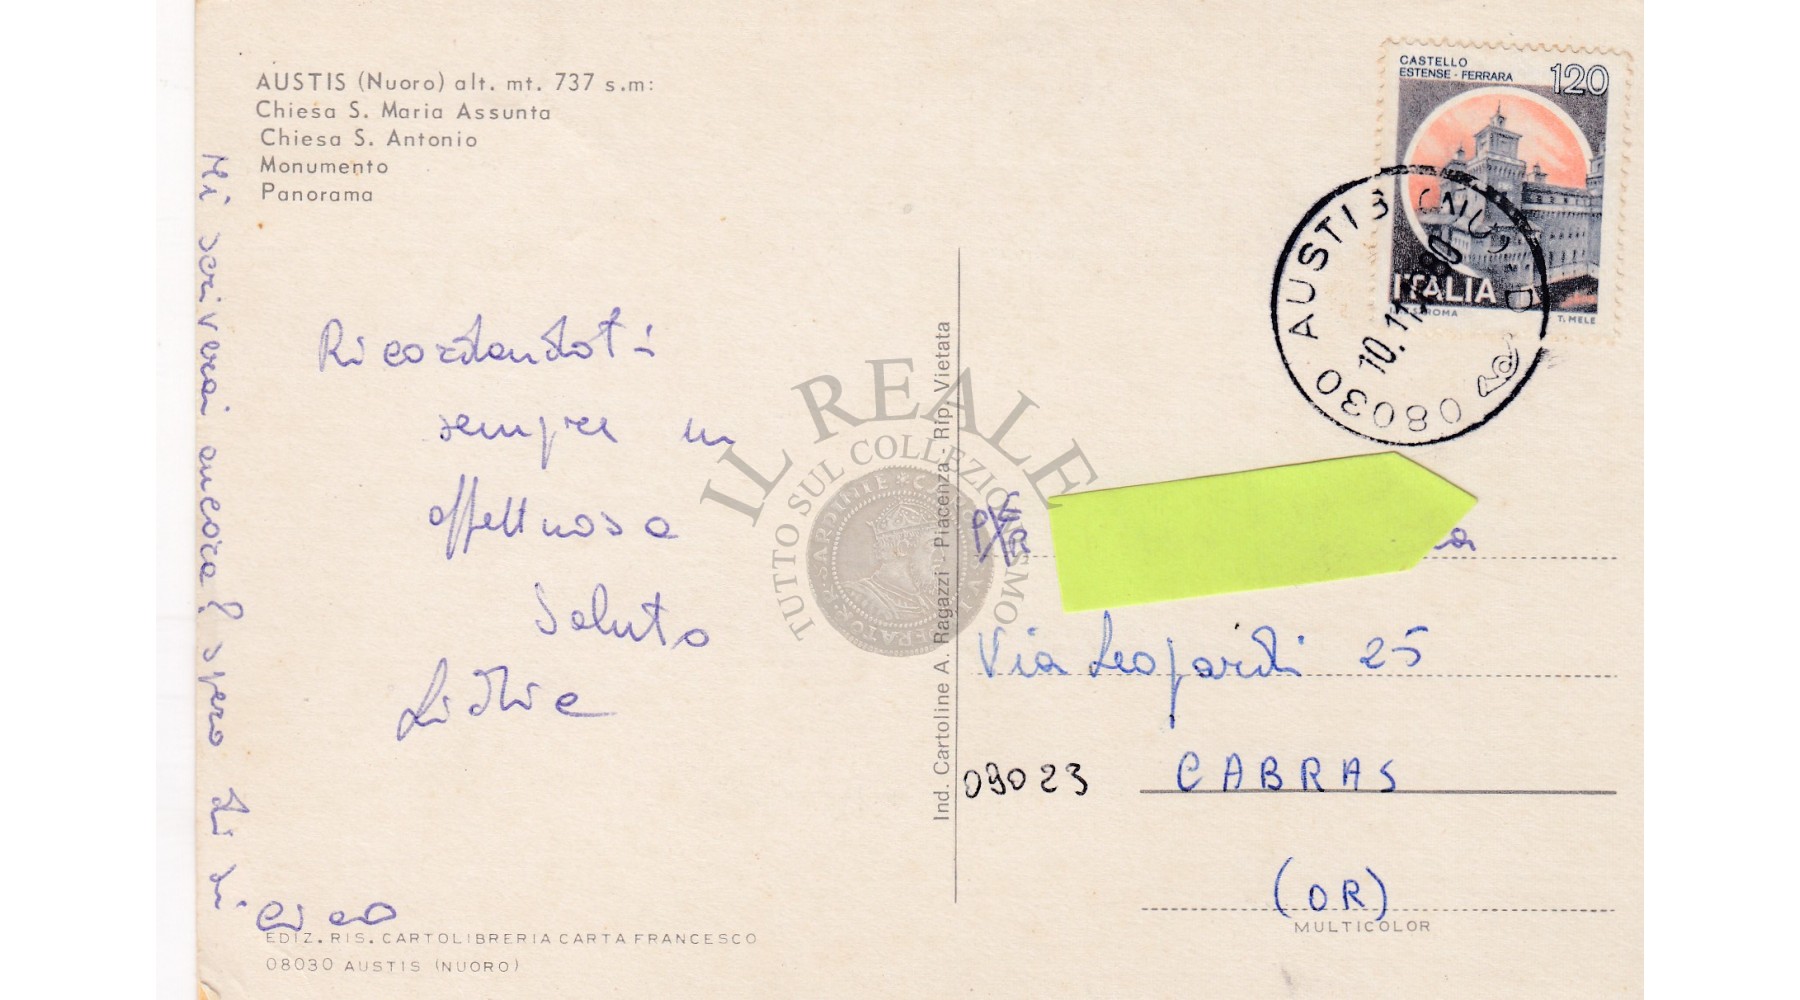 AUSTIS (Nuoro) alt. mt. 737 s.m:
Chiesa S. Maria Assunta
Chiesa S. Antonio
Monumento
Panorama
Mi scriverai ancora? spero di si.
ciao
Ricordandoti
sempre un
affettuoso
Saluto
EDIZ. RIS. CARTOLIBRERIA CARTA FRANCESCO
08030 AUSTIS (NUORO)
Ind. Cartoline A. Ragazzi - Piacenza - Rip. Vietata
IL REALE
TUTTO SUL COLLEZIONISMO
CASTELLO
ESTENSE - FERRARA
120
ITALIA
ROMA
T. MELE
08030 AUSTIS
10.11.80
Via Leopardi 25
09023 CABRAS
(OR)
MULTICOLOR